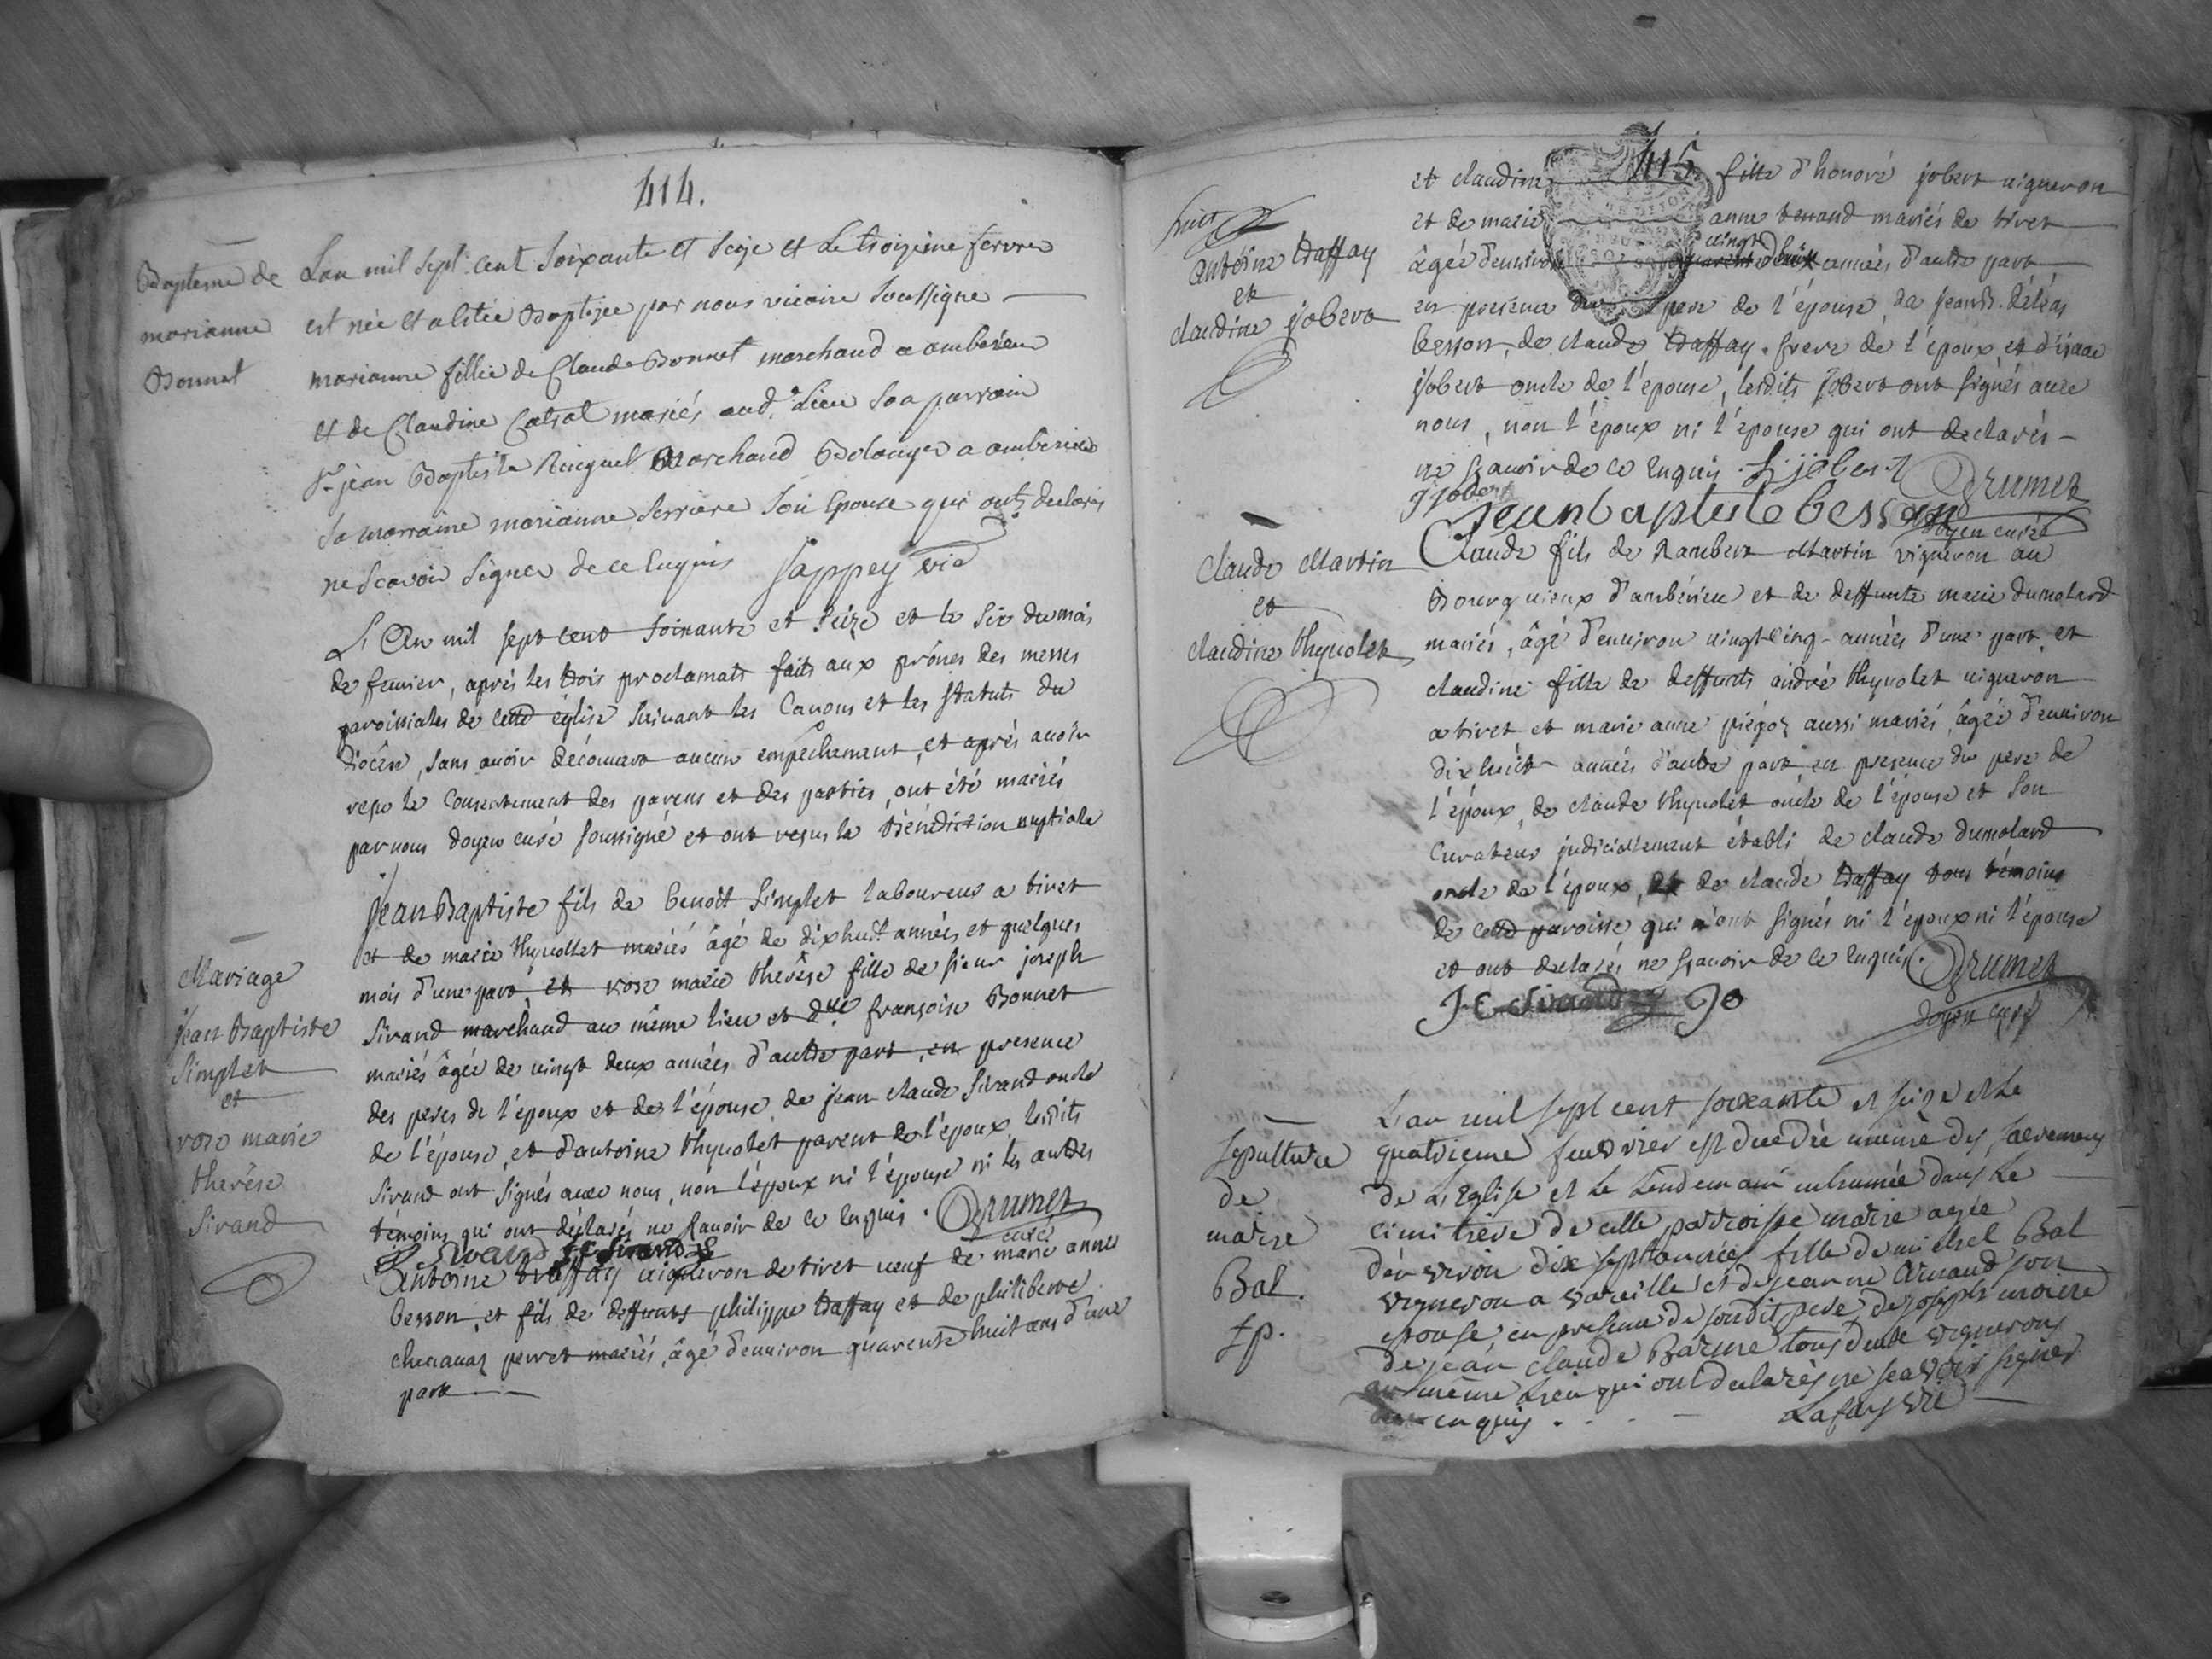 414.
Bapteme de
marianne
Bonnet
Lan mil sept cent soixante et seize et Le troizieme fevrier
est née et a été Baptizee par nous vicaire soussigne
marianne fillie de Claude Bonnet marchand a amberieu
et de Claudine mariés aud. Lieu son parrain
Sr jean Baptiste marchand Bolanger a amberieu
sa marraine marianne serriere son epouse qui ont declarés
ne scavoir signer de ce Enquis sappey vic
L'An mil sept cent soixante et seize et le six du mois
de fevrier, aprés les trois proclamats faits aux prônes des messes
paroissiales de cette église suivant les Canons et les statuts du
diocèse, sans avoir découvert aucun empêchement, et aprés avoir
reçu le Consentement des parens et des parties, ont été mariés
par nous doyen curé soussigné et ont reçus la Bénédiction nuptiale
Mariage
jean Baptiste
Simplet
et
rose marie
therése
Sirand
jean Baptiste fils de benoît Simplet laboureur a tiret
et de marie thynollet mariés âgé de dixhuit années et quelques
mois d'une part, et rose marie therêse fille de sieur joseph
Sirand marchand au même lieu et dlle françoise Bonnet
mariés âgée de vingt deux années d'autre part, en presence
des peres de l'époux et de l'épouse, de jean claude Sirand oncle
de l'épouse, et d'antoine thynolet parent de l'époux, lesdits
Sirand ont signés avec nous, non l'époux ni l'épouse ni les autres
témoins qui ont déclarés ne scavoir de ce Enquis. Brumet
Sirand J C Sirand curé
antoine traffay vigneron de tiret veuf de marie anne
besson, et fils de deffunts philippe traffay et de philiberte
perret mariés, âgé d'environ quarente huit ans d'une
part
415
huit
antoine traffay
et
claudine jobert
et claudine fille d'honoré jobert vigneron
et de marie anne tenand mariés de tiret
âgée d'environ vingt années d'autre part
en presence du pere de l'épouse, de jean B.
besson, de claude traffay frere de l'époux, et d'isaac
jobert oncle de l'epouse, lesdits jobert ont signés avec
nous, non l'époux ni l'épouse qui ont declarés
ne scavoir de ce Enquis. h jobert Brumet
j jobert jean baptiste besson doyen curé
claude Martin
et
claudine thynolet
Claude fils de Rambert Martin vigneron au
Bourg vieux d'ambérieu et de deffunte marie dumolard
mariés, âgé d'environ vingt cinq années d'une part, et
claudine fille de deffunts andré thynolet vigneron
a tiret et marie anne aussi mariés, âgée d'environ
dixhuit années d'autre part, en presence du pere de
l'époux, de claude thynolet oncle de l'épouse et son
Curateur judiciairement établi de claude dumolard
oncle de l'époux, de claude traffay tous témoins
de cette paroisse qui n'ont signés ni l'époux ni l'épouse
et ont declarés ne scavoir de ce Enquis. Brumet
J C Sirand doyen curé
sepulture
de
marie
Bal.
fp.
L'an mil sept cent soixante et seize et Le
quatrieme feuvrier est decedée munie des sacremens
de L'Eglise et Le Lendemain inhumée dans Le
cimitiere de cette parroisse marie agée
d'environ dix sept années fille de michel Bal
vigneron a vareille et de jeanne Arnaud son
epouse, en presence de sondit pere, de joseph
de jean claude Barme tous deux vignerons
au même Lieu qui ont declarés ne scavoir signer
enquis. Lafay vic